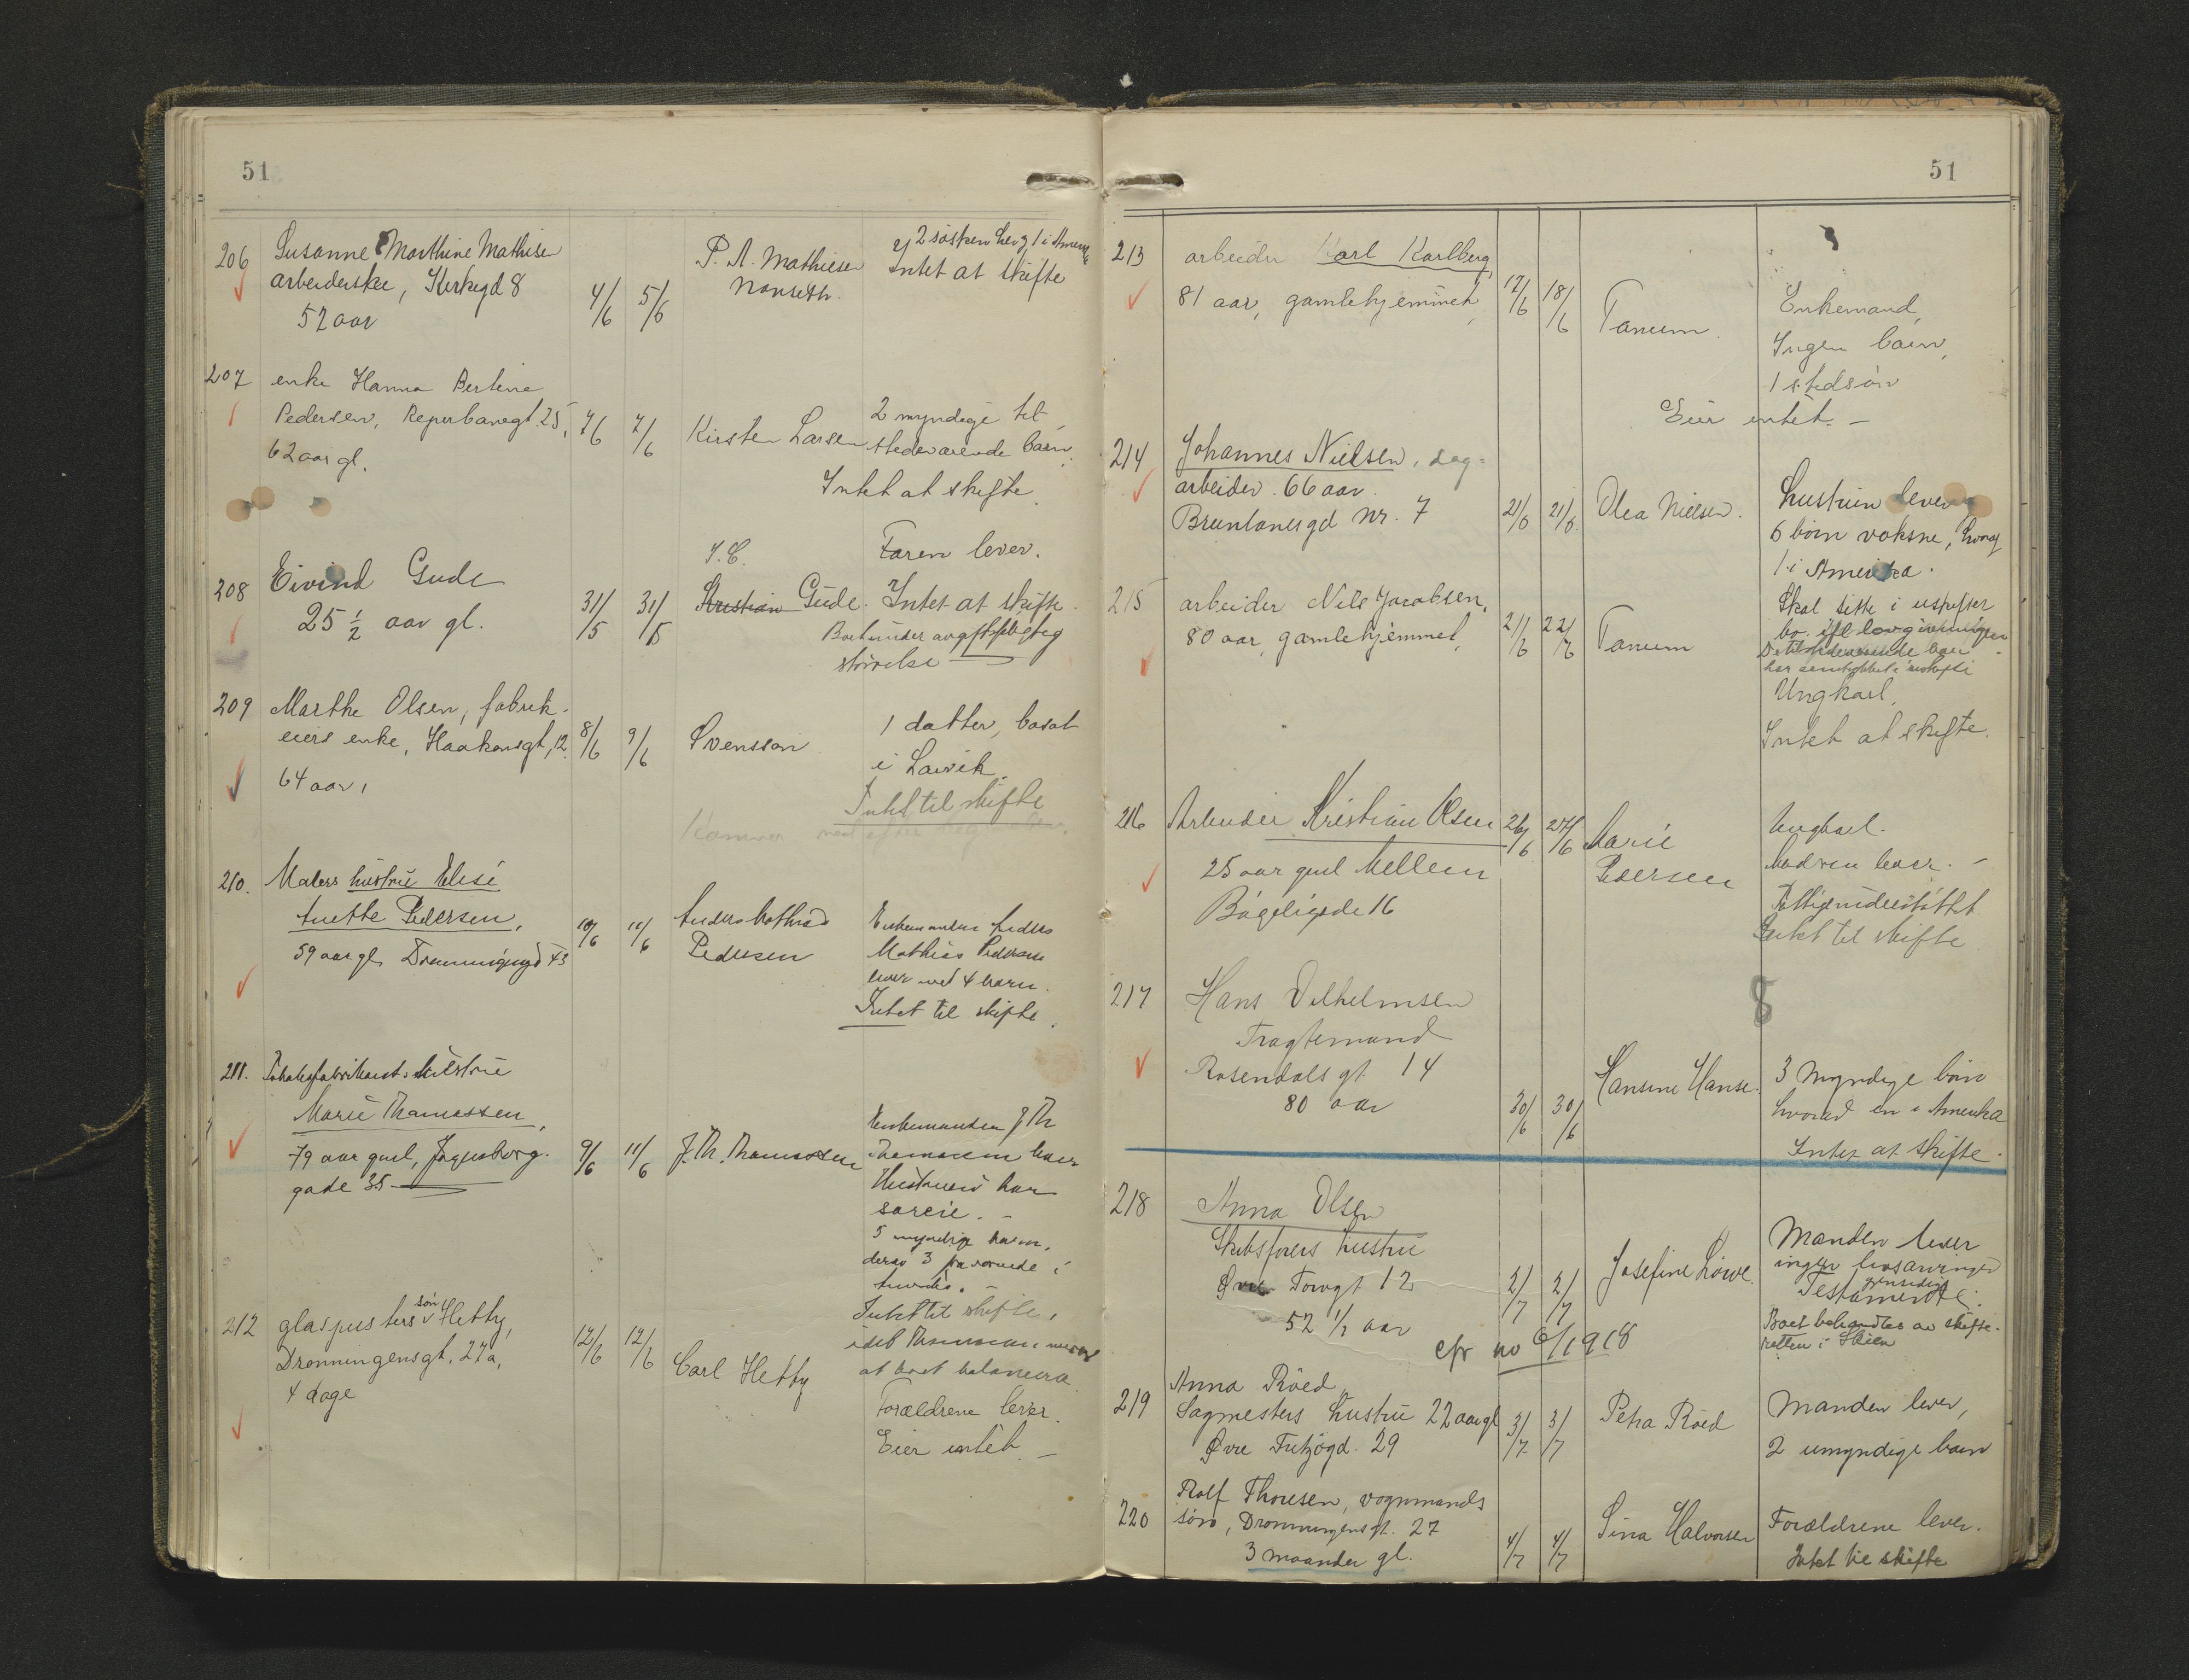 51
206 Susanne Marthine Mathisen
arbeiderske, Kirkegd 8
52 aar
4/6 5/6
P. A. Mathisen
Nanseth.
2 søsken hvog 1 i Amerika
Intet at skifte
207 enke Hanna Bertine
Pedersen, Reperbanegt. 25,
62 aar gl.
7/6 7/6
Kirsten Larsen
2 myndige til
stedeværende barn.
Intet at skifte.
208 Eivind Gude
25 1/2 aar gl.
31/5 31/5
J. C.
Kristian Gude.
Faren lever.
Intet at skifte.
Boet under avgiftspligtig
størrelse
209 Marthe Olsen, fabrik-
eiers enke, Haakonsgt, 12.
64 aar,
8/6 9/6
Svensson
1 datter, bosat
i Larvik.
Intet til skifte
210. Malers hustru Elise
Anette Pedersen,
59 aar gl. Dronningsgd 43
10/6 11/6
Anders Mathias
Pedersen
Enkemanden Anders
Mathias Pedersen
lever med 4 barn.
Intet til skifte.
211. Tobaksfabrikants hustru
Marie Thomassen,
79 aar gml, Jegersborg-
gade 35
9/6 11/6
J. Th. Thomassen
Enkemanden J Th
Thomassen lever
Hustruen har
særeie. -
5 myndige barn,
derav 3 fraværende i
Amerika. -
Intet til skifte,
idet Thomassen mener
at boet balancerer.
212 glaspusters søn Hetty,
Dronningensgt. 27a,
4 dage
12/6 12/6
Carl Hetty
Forældrene lever.
Eier intet. -
51
213 arbeider Karl Karlberg,
81 aar, gamlehjemmet,
17/6 18/6
Tanum.
Enkemand,
Ingen barn,
1 stedsøn
Eier intet. -
214 Johannes Nielsen, dag-
arbeider. 66 aar.
Brunlanesgd Nr. 7
21/6 21/6
Olea Nielsen.
Hustruen lever
6 børn voksne, hvorav
1 i Amerika.
Skal sitte i uskiftet
bo ifl lovgivningen.
215 arbeider Nils Jacobsen,
80 aar, gamlehjemmet,
21/6 22/6
Tanum
Ungkarl,
Intet at skifte.
216 Arbeider Kristian Olsen
25 aar gml Mellem
Bøgeligade 16
26/6 27/6
Marie
Pedersen
Ungkarl.
Modren lever. -
Fattigunderstøttet.
Intet til skifte.
217 Hans Vilhelmsen
Fragtemand
Rosendals gt 14
80 aar
30/6 30/6
Hansine Hanse.
8
3 myndige børn
hvorav en i Amerika
Intet at skifte.
218 Anna Olsen
Skibsførers hustru
Øvre Torvgt 12
52 1/2 aar
2/7 2/7
Josefine Løwe.
Manden lever
ingen livsarvinger
gjensidig
Testamente.
Boet behandles av skifte-
retten i Skien
cfr no 6/1918
219 Anna Røed
Sagmesters hustru 22 aar gl
Øvre Fritzøgd. 29
3/7 3/7
Petra Røed
Manden lever,
2 umyndige barn
220 Rolf Thoresen, vognmands
søn, Dronningensgt. 27
3 maaneder gl.
4/7 4/7
Sina Halvorsen
Forældrene lever.
Intet til skifte